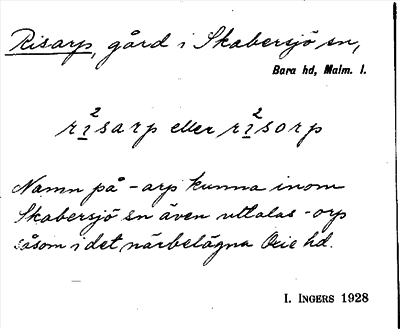 Risarp, gård i Skabersjö sn,
Bara hd, Malm. l.
rı̲²sarp eller rı̲²sorp
Namn på -arp kunna inom
Skabersjö sn även uttalas -orp
såsom i det närbelägna Oxie hd.
I. INGERS 1928